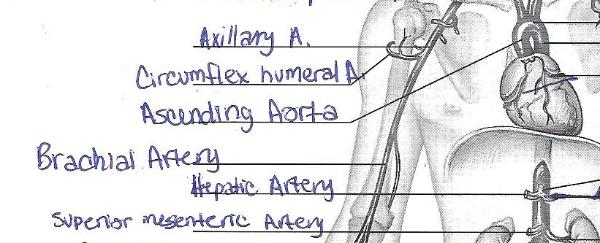 Axillary A.
Circumflex humeral A
Ascending Aorta
Brachial Artery
Hepatic Artery
Superior mesenteric Artery